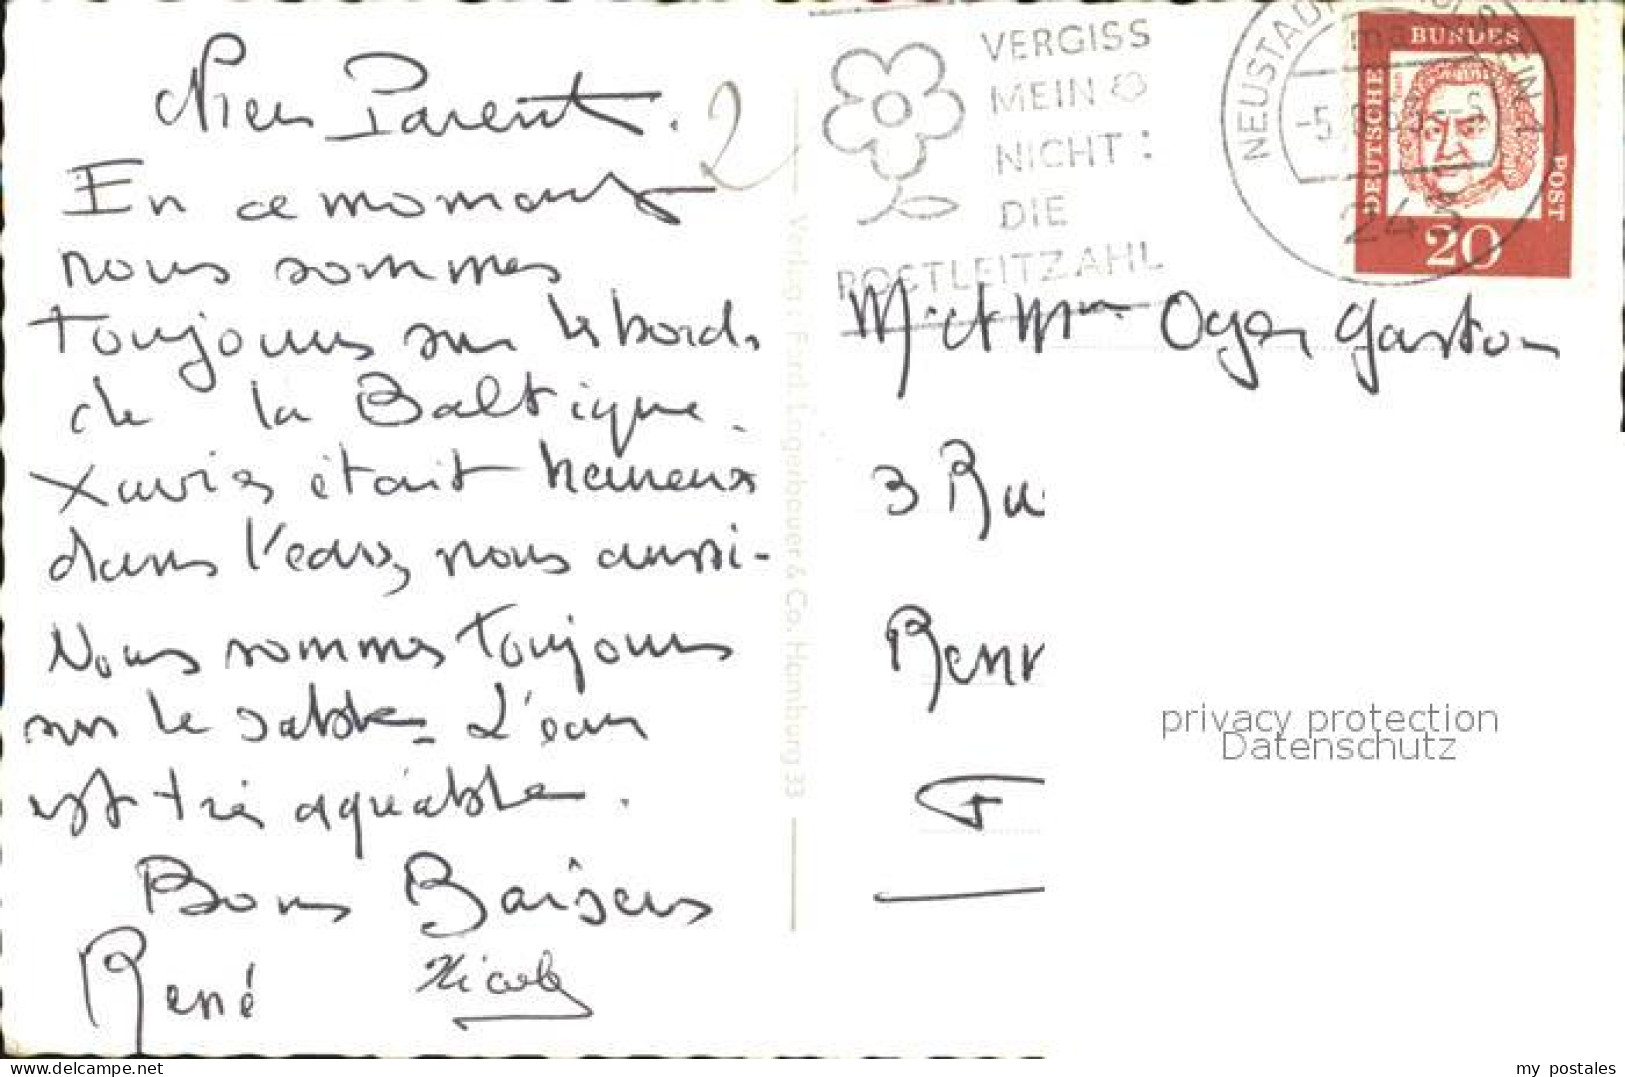 Parent.
En ce moment
nous sommes
toujours sur le bord.
de la Baltique.
Xavier était heureux
dans l'eau, nous aussi-
Nous sommes toujours
sur le sable- L'eau
est très agréable.
Bons Baisers
René Nicole
2
Verlag: Ferd. Lagerbauer & Co. Hamburg 33
VERGISS
MEIN
NICHT:
DIE
POSTLEITZAHL
NEUSTADT
243
DEUTSCHE BUNDES POST
20
M. et Mme Oger Gaston
3 Ru
Renn
F
privacy protection
Datenschutz
www.delcampe.net
my_postales